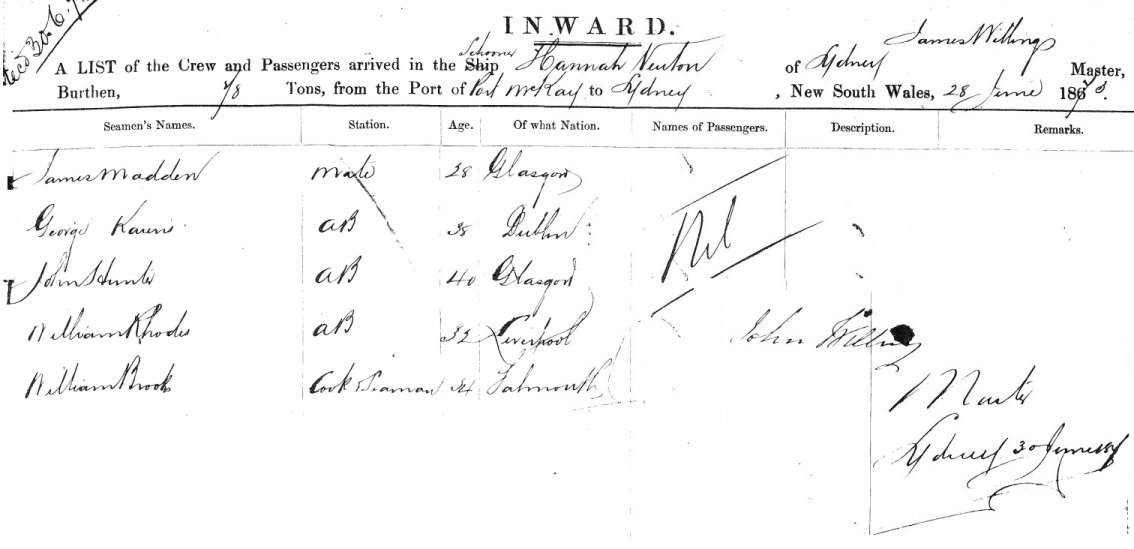 Recd 30.6.7
INWARD.
James Willings
A LIST of the Crew and Passengers arrived in the Ship Schooner Hannah Newton of Sydney Master,
Burthen, 78 Tons, from the Port of Port McKay to Sydney, New South Wales, 28 June 1873.
Seamen's Names. Station. Age. Of what Nation. Names of Passengers. Description. Remarks.
James Madden Mate 28 Glasgow
George AB 38 Dublin Nil
John Hunter AB 40 Glasgow
William Rhodes AB 32 Liverpool John
William Brook Cook & Seaman 34 Falmouth
Master
Sydney 30 June